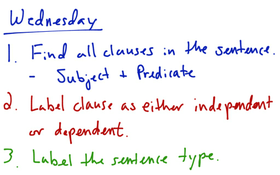 Wednesday
1. Find all clauses in the sentence.
- Subject + Predicate
2. Label clause as either independent
or dependent.
3. Label the sentence type.